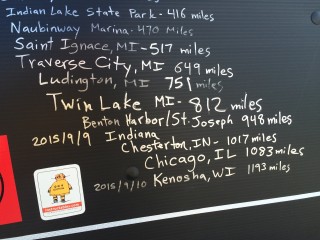 Indian Lake State Park - 416 miles
Naubinway Marina - 470 Miles
Saint Ignace, MI - 517 miles
Traverse City, MI 649 miles
Ludington, MI 751 miles
Twin Lake MI - 812 miles
Benton Harbor/St. Joseph 948 miles
2015/9/9 Indiana
Chesterton, IN - 1017 miles
Chicago, IL 1083 miles
2015/9/10 Kenosha, WI 1193 miles